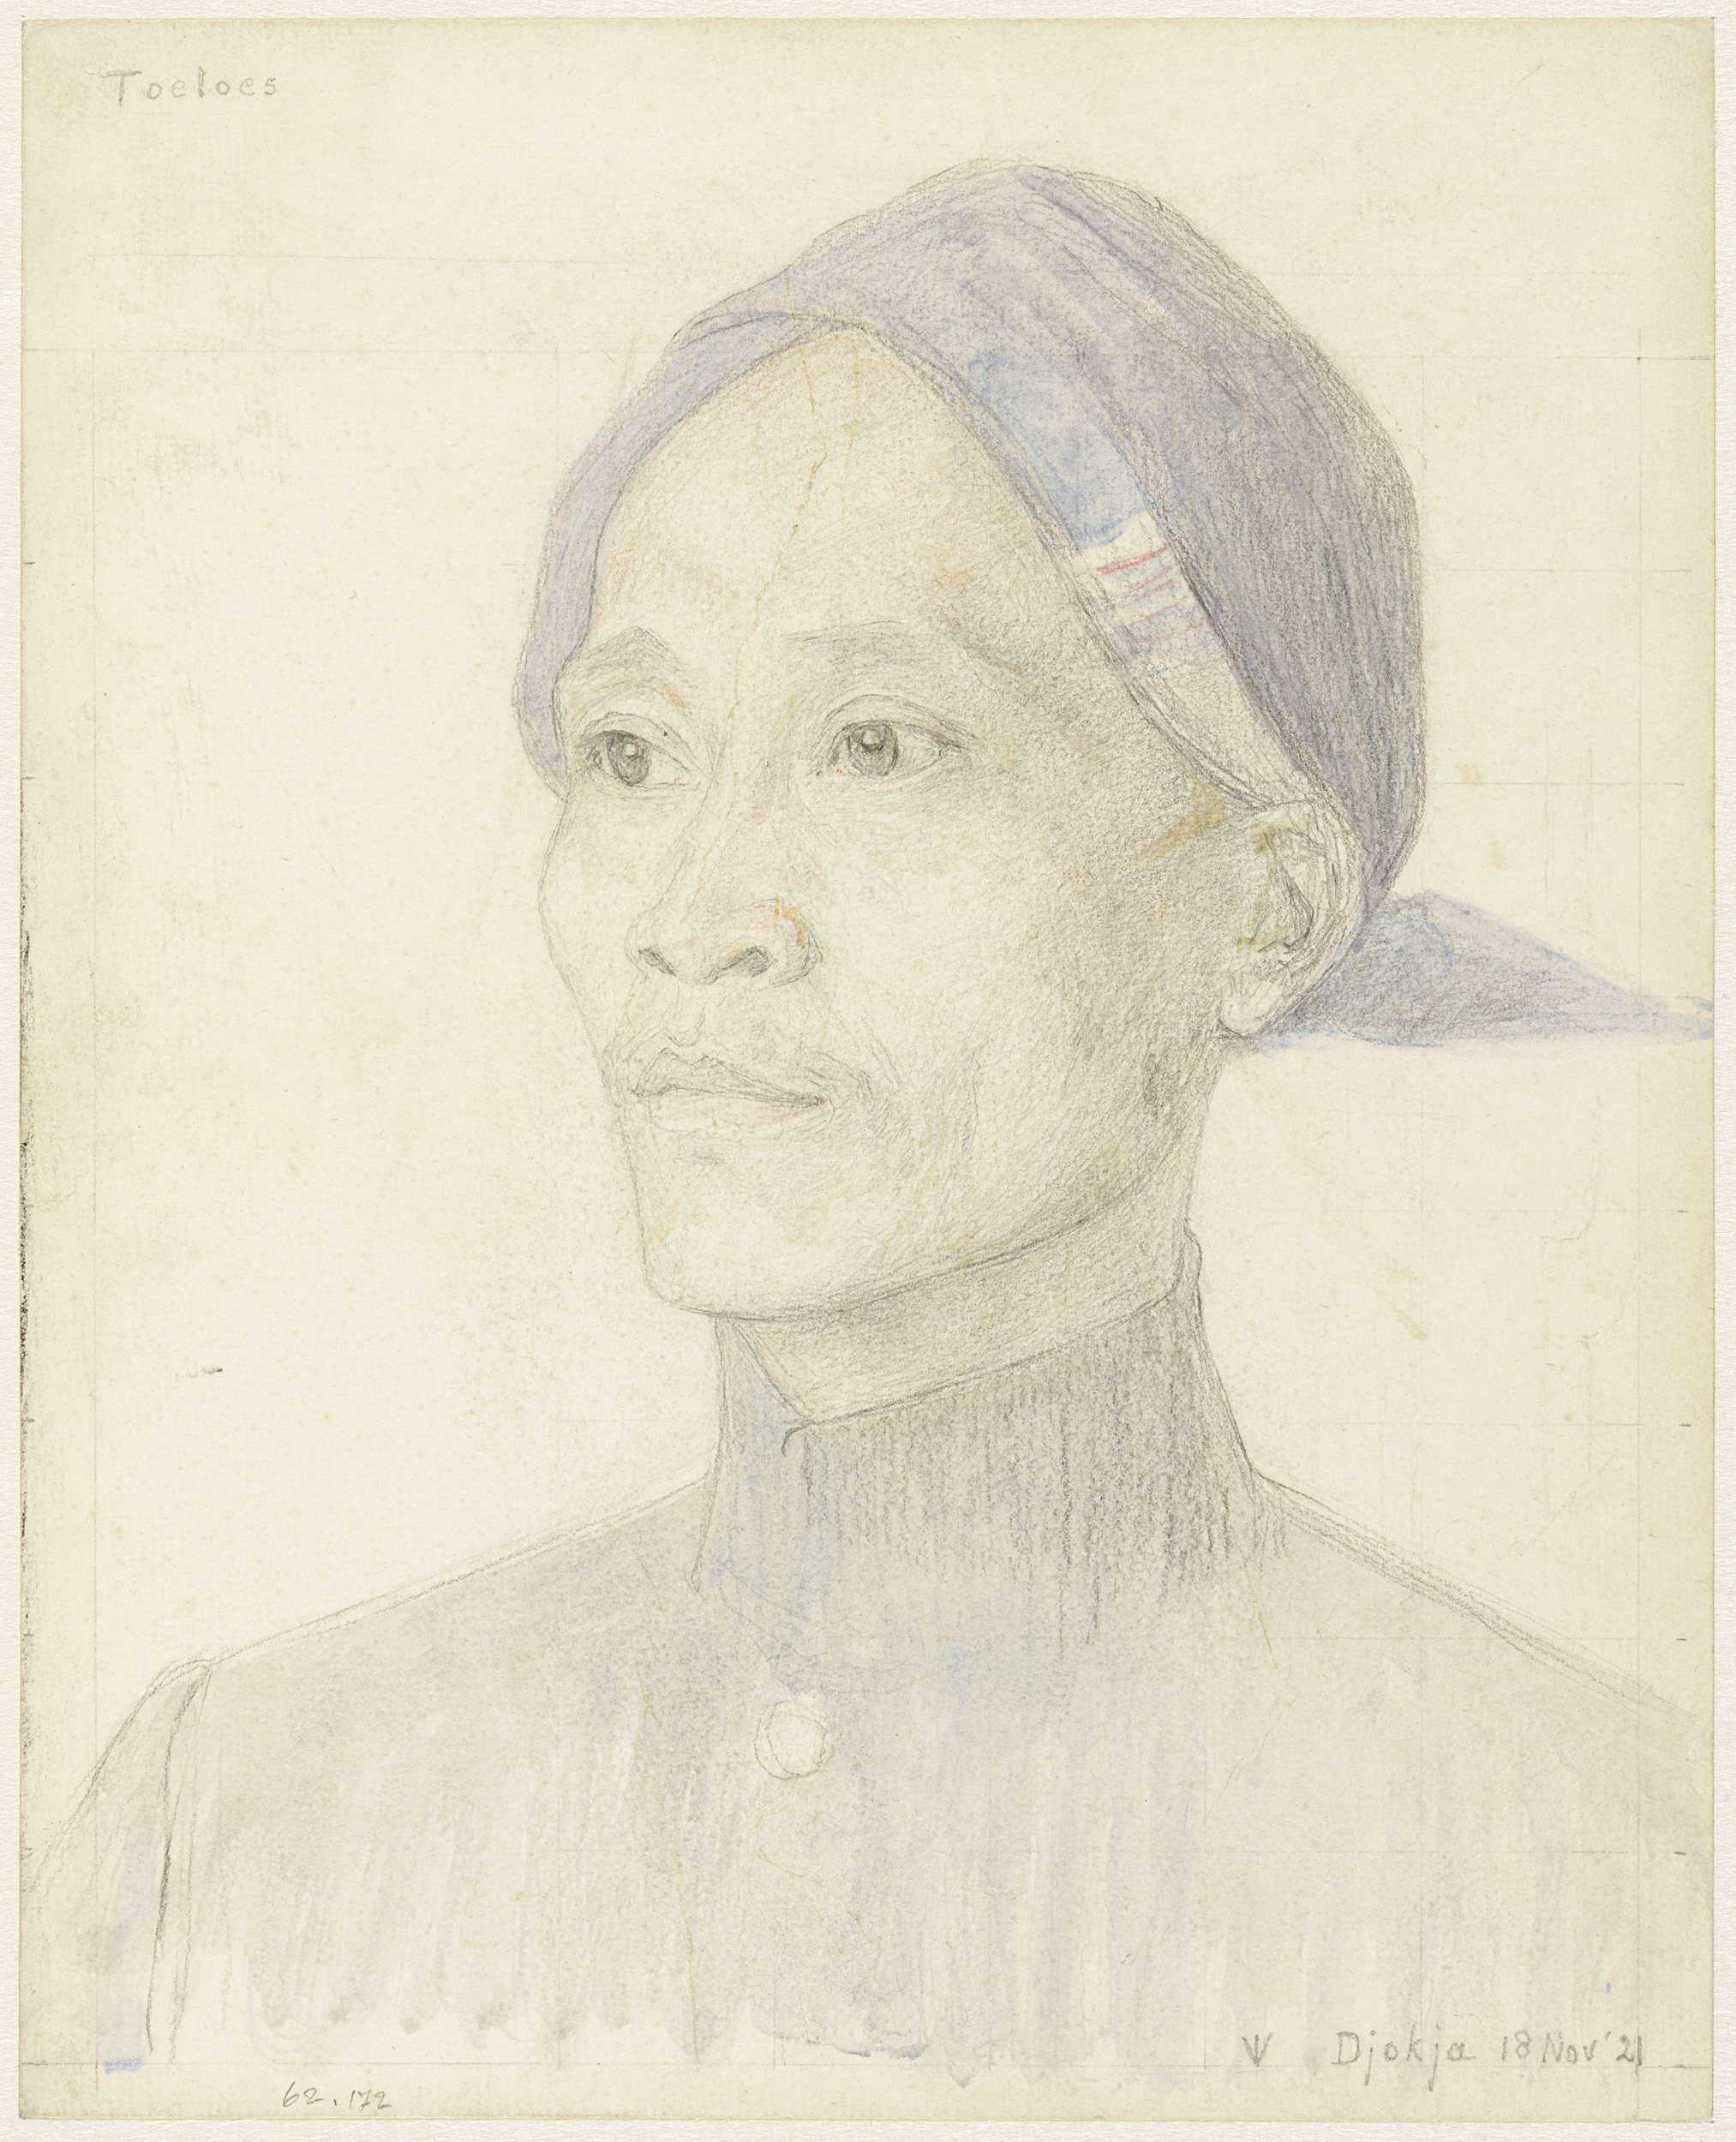 Toeloes
Djokja 18 Nov '21
62.172